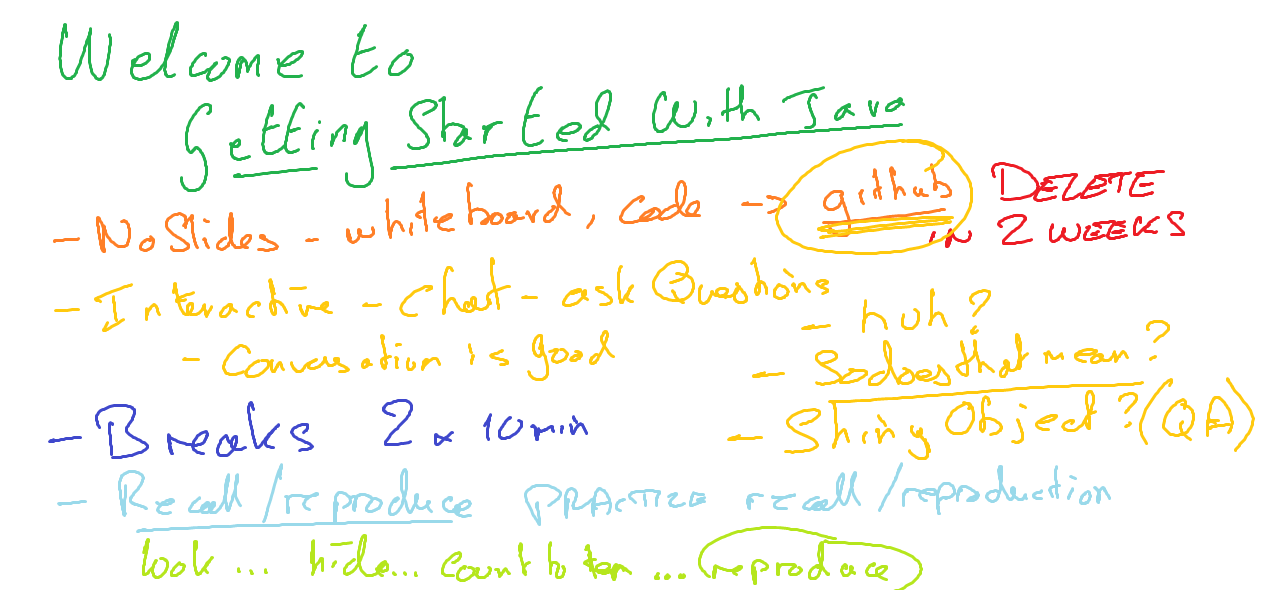 Welcome to
Getting Started With Java
- No Slides - whiteboard, code -> github DELETE
IN 2 WEEKS
- Interactive - Chat - ask Questions
- huh?
- Conversation is good
- So does that mean?
- Breaks 2 x 10 min
- Shiny Object? (QA)
- Recall/reproduce PRACTIZE recall/reproduction
look ... hide... count to ten ... reproduce